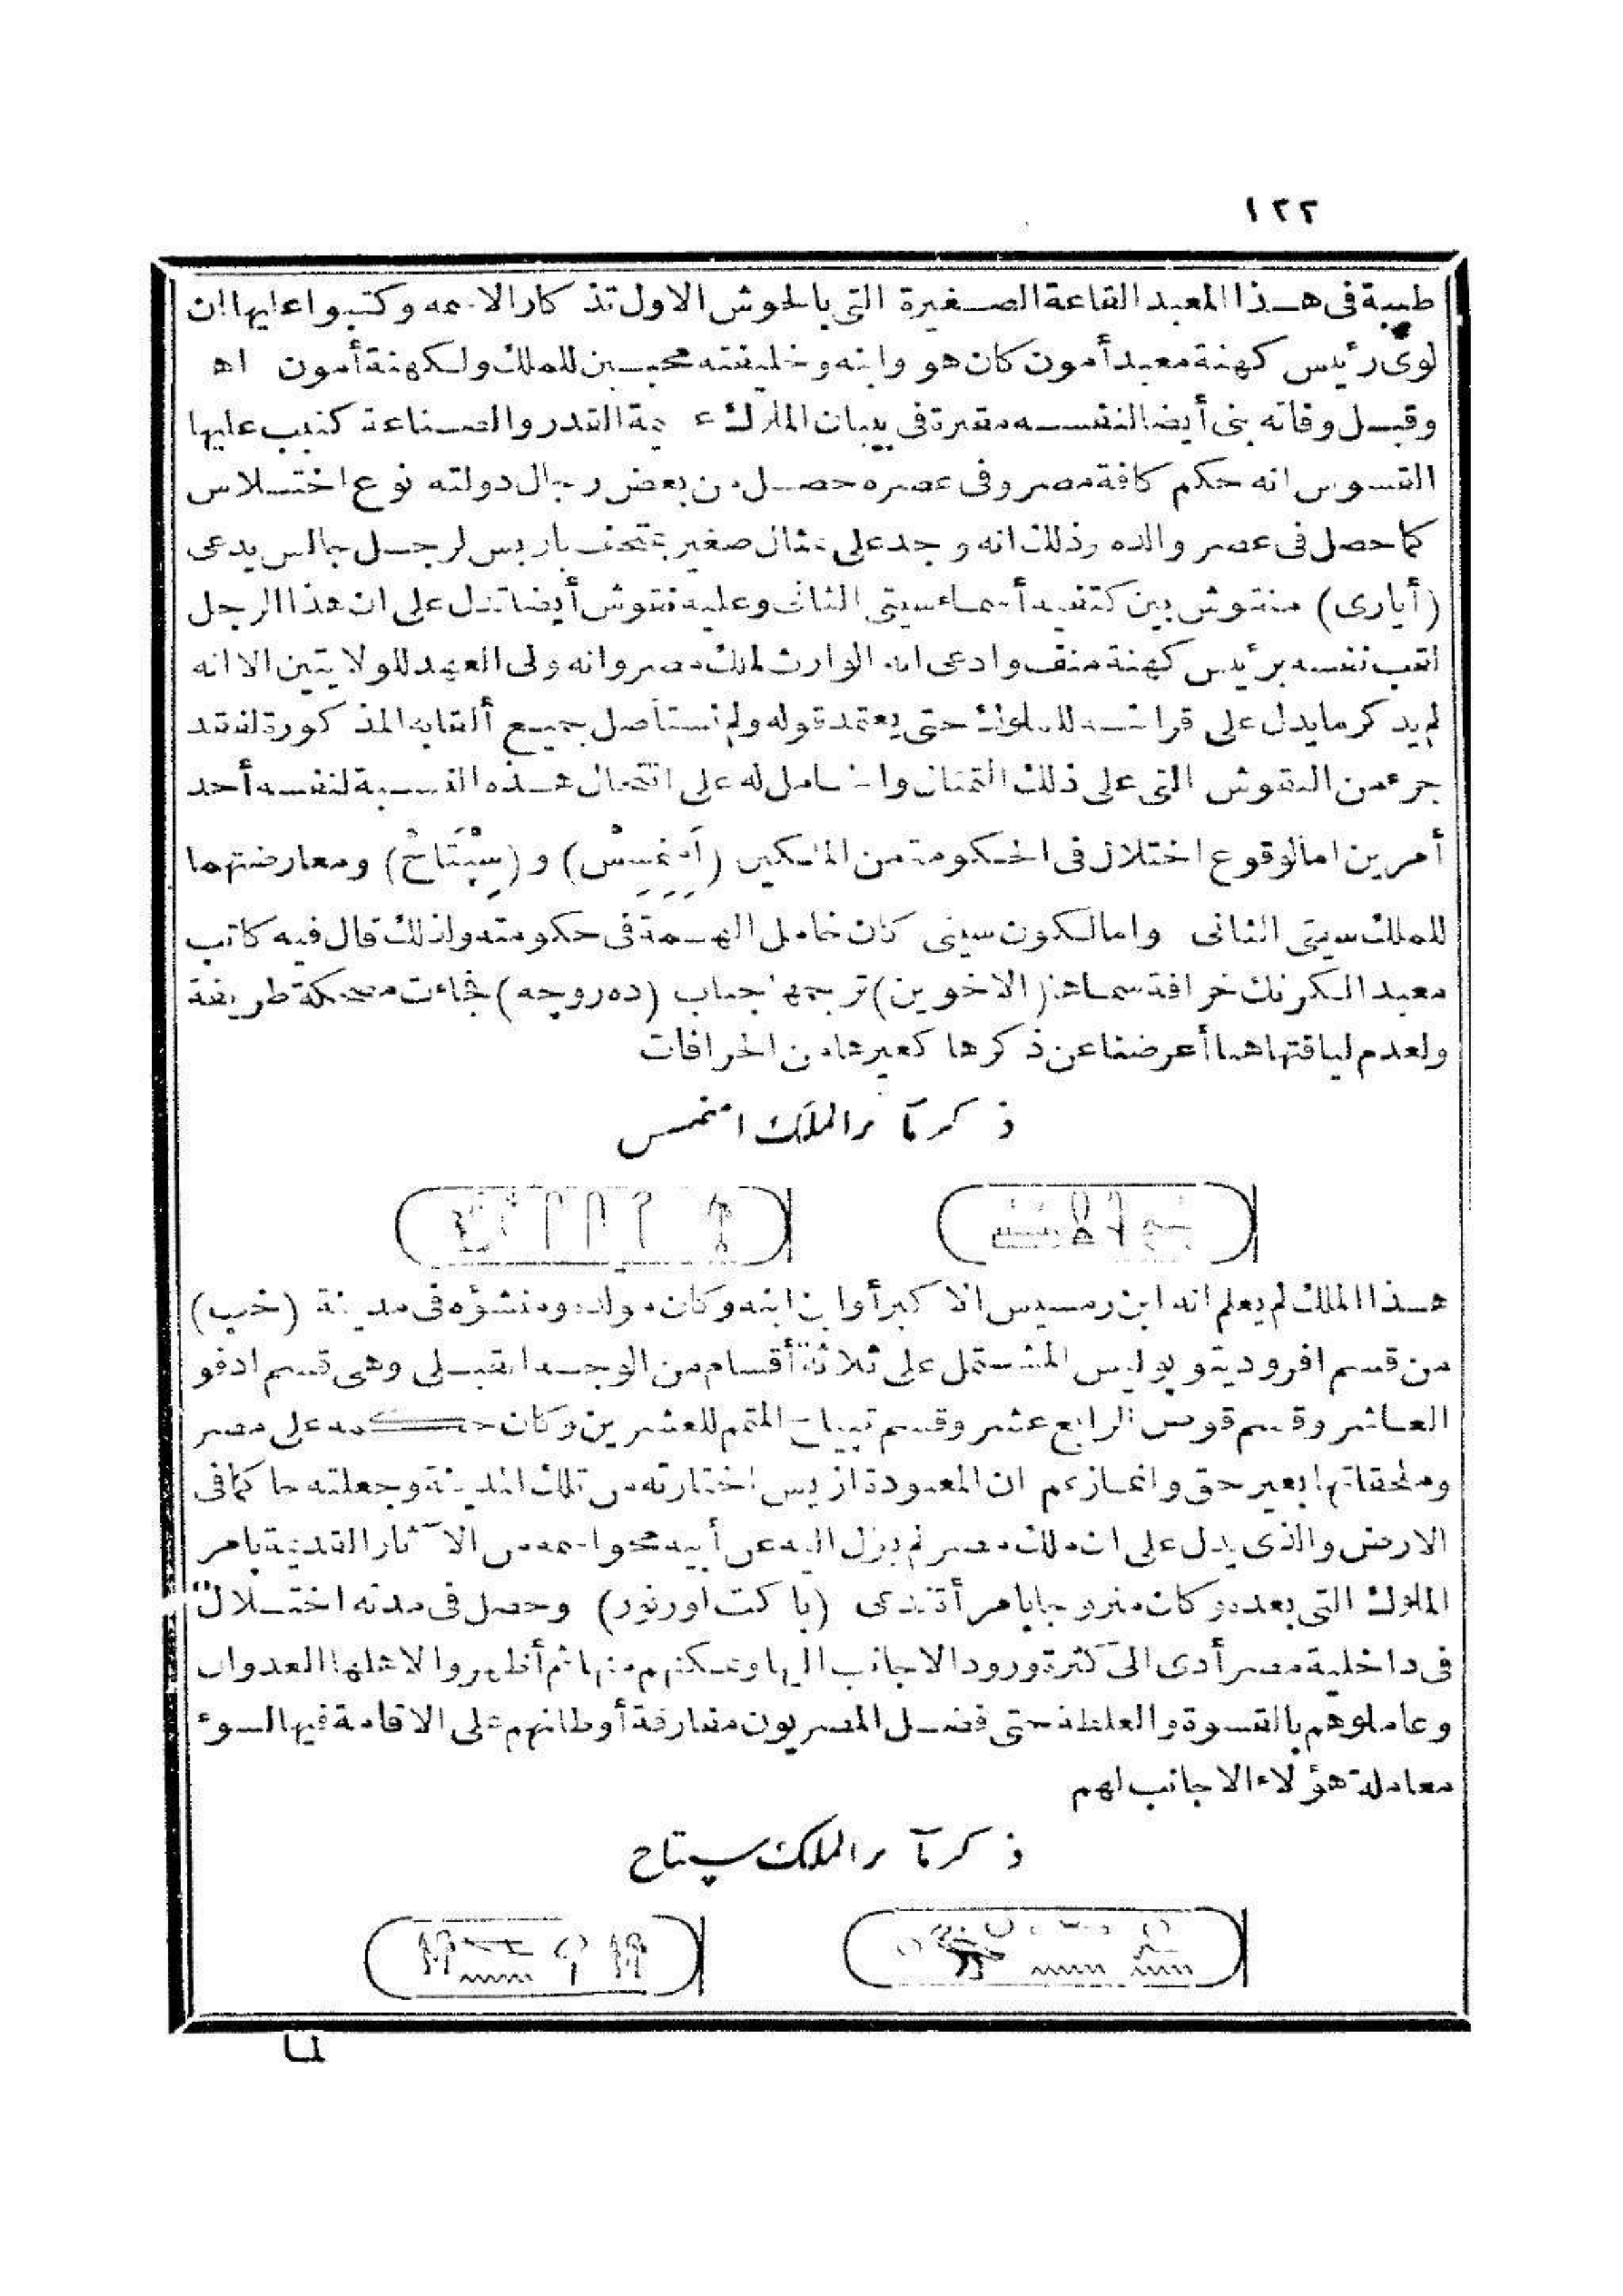 ١٢٢
طيبة فى هـذا المعبد القاعة الصـغيرة التى بالحوش الاول تذكارا لاسمه وكتبوا عليها ان
لوى رئيس كهنة معبد أمون كان هو وابنه وخليفته محبـين للملك ولكهنة أمون اه
وقبـل وفاته بنى أيضا لنفسـه مقبرة فى بيبان الملوك عـمة القدر والصـناعة كتب عليها
القسوس انه حكم كافة مصر وفى عصره حصـل من بعض رجال دولته نوع اختـلاس
كما حصل فى عصر والده وذلك انه وجد على تمثال صغير بمتحف باريس لرجـل جالس يدعى
(أيارى) منقوش بين كتفيه أسماء سيتى الثانى وعليه نقوش أيضا تدل على ان هذا الرجل
لقب نفسه برئيس كهنة منف وادعى انه الوارث لملك مصر وانه ولى العهد للولايتين الا انه
لم يذكر ما يدل على قرابتـه للملوك حتى يعتمد قوله ولم نستأصل جميع ألقابه المذكورة لفقد
جزء من النقوش التى على ذلك التمثال والحامل له على انتحال هـذه النسـبة لنفسه أحد
أمرين اما لوقوع اختلال فى الحكومة من الملكين (أَمِنْمِسِسْ) و (سِبْتَاحْ) ومعارضتهما
للملك سيتى الثانى واما لكون سيتى كان خامل الهـمة فى حكومته ولذلك قال فيه كاتب
معبد الكرنك خرافة سماها (الاخوين) ترجمها جناب (ده روجه) فجاءت مضحكة طريفة
ولعدم لياقتها هنا أعرضنا عن ذكرها كغيرها من الخرافات
ذكر مآثر الملك امنمسس
هـذا الملك لم يعلم انه ابن رمسيس الاكبر أو ابن ابنه وكان مولده ومنشؤه فى مدينة (خب)
من قسم افروديتوبوليس المشـتمل على ثلاثة أقسام من الوجـه القبـلى وهى قسم ادفو
العـاشر وقسم قوص الرابع عشر وقسم تيباح المتمم للعشرين وكان حكمه على مصر
وملحقاتها بغير حق وانما زعم ان المعبودة ازيس اختارته من تلك المدينة وجعلته حاكما فى
الارض والذى يدل على ان ملك مصر لم ينزل اليه عن أبيه محو اسمه من الآثار القديمة بامر
الملوك التى بعده وكان متزوجا بامرأة تدعى (باكت اورنور) وحصل فى مدته اختـلال
فى داخلية مصر أدى الى كثرة ورود الاجانب اليها وتمكنهم منها ثم أظهروا لاهلها العدوان
وعاملوهم بالقسوة والغلظة حتى فضـل المصريون مفارقة أوطانهم على الاقامة فيها لسوء
معاملة هؤلاء الاجانب لهم
ذكر مآثر الملك سپتاح
لما